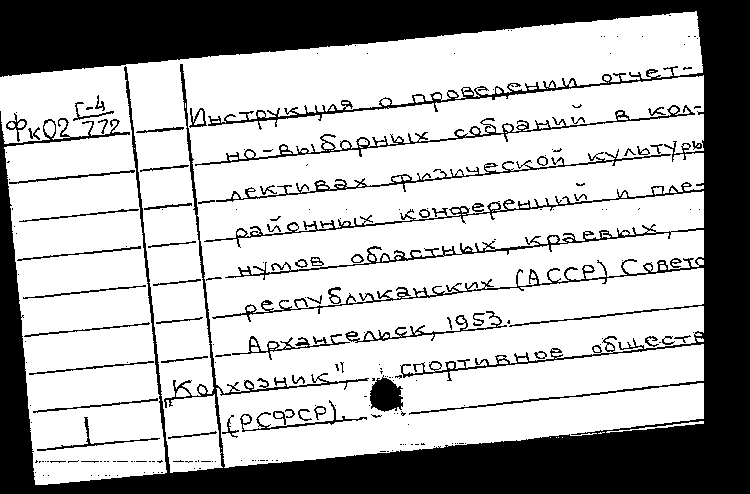 Фк02 Г-4/772
Инструкция о проведении отчет-
но-выборных собраний в кол-
лективах физической культуры
районных конференций и пле-
нумов областных, краевых,
республиканских (АССР) Совето
Архангельск, 1953.
"Колхозник", спортивное обществ
(РСФСР).
1